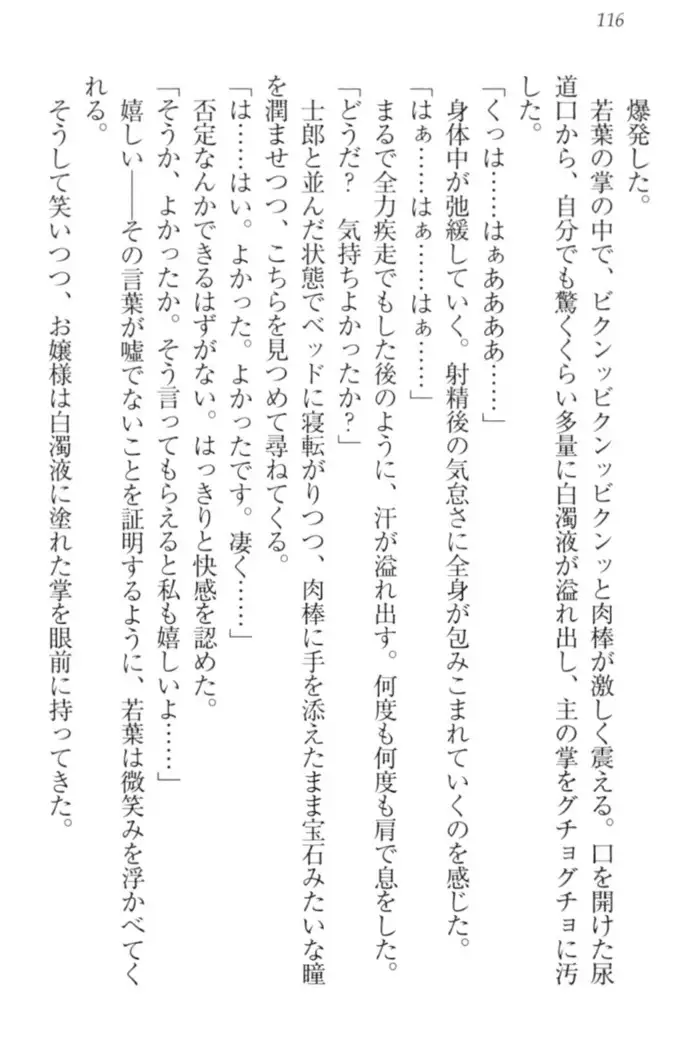 116
爆発した。
若葉の掌の中で、ビクンッビクンッビクンッと肉棒が激しく震える。口を開けた尿
道口から、自分でも驚くくらい多量に白濁液が溢れ出し、主の掌をグチョグチョに汚
した。
「くっは……はぁあああぁ……」
身体中が弛緩していく。射精後の気怠さに全身が包みこまれていくのを感じた。
「はぁ……はぁ……はぁ……」
まるで全力疾走でもした後のように、汗が溢れ出す。何度も何度も肩で息をした。
「どうだ？　気持ちよかったか？」
士郎と並んだ状態でベッドに寝転がりつつ、肉棒に手を添えたまま宝石みたいな瞳
を潤ませつつ、こちらを見つめて尋ねてくる。
「は……はい。よかった。よかったです。凄く……」
否定なんかできるはずがない。はっきりと快感を認めた。
「そうか、よかったか。そう言ってもらえると私も嬉しいよ……」
嬉しい――その言葉が嘘でないことを証明するように、若葉は微笑みを浮かべてく
れる。
そうして笑いつつ、お嬢様は白濁液に塗れた掌を眼前に持ってきた。